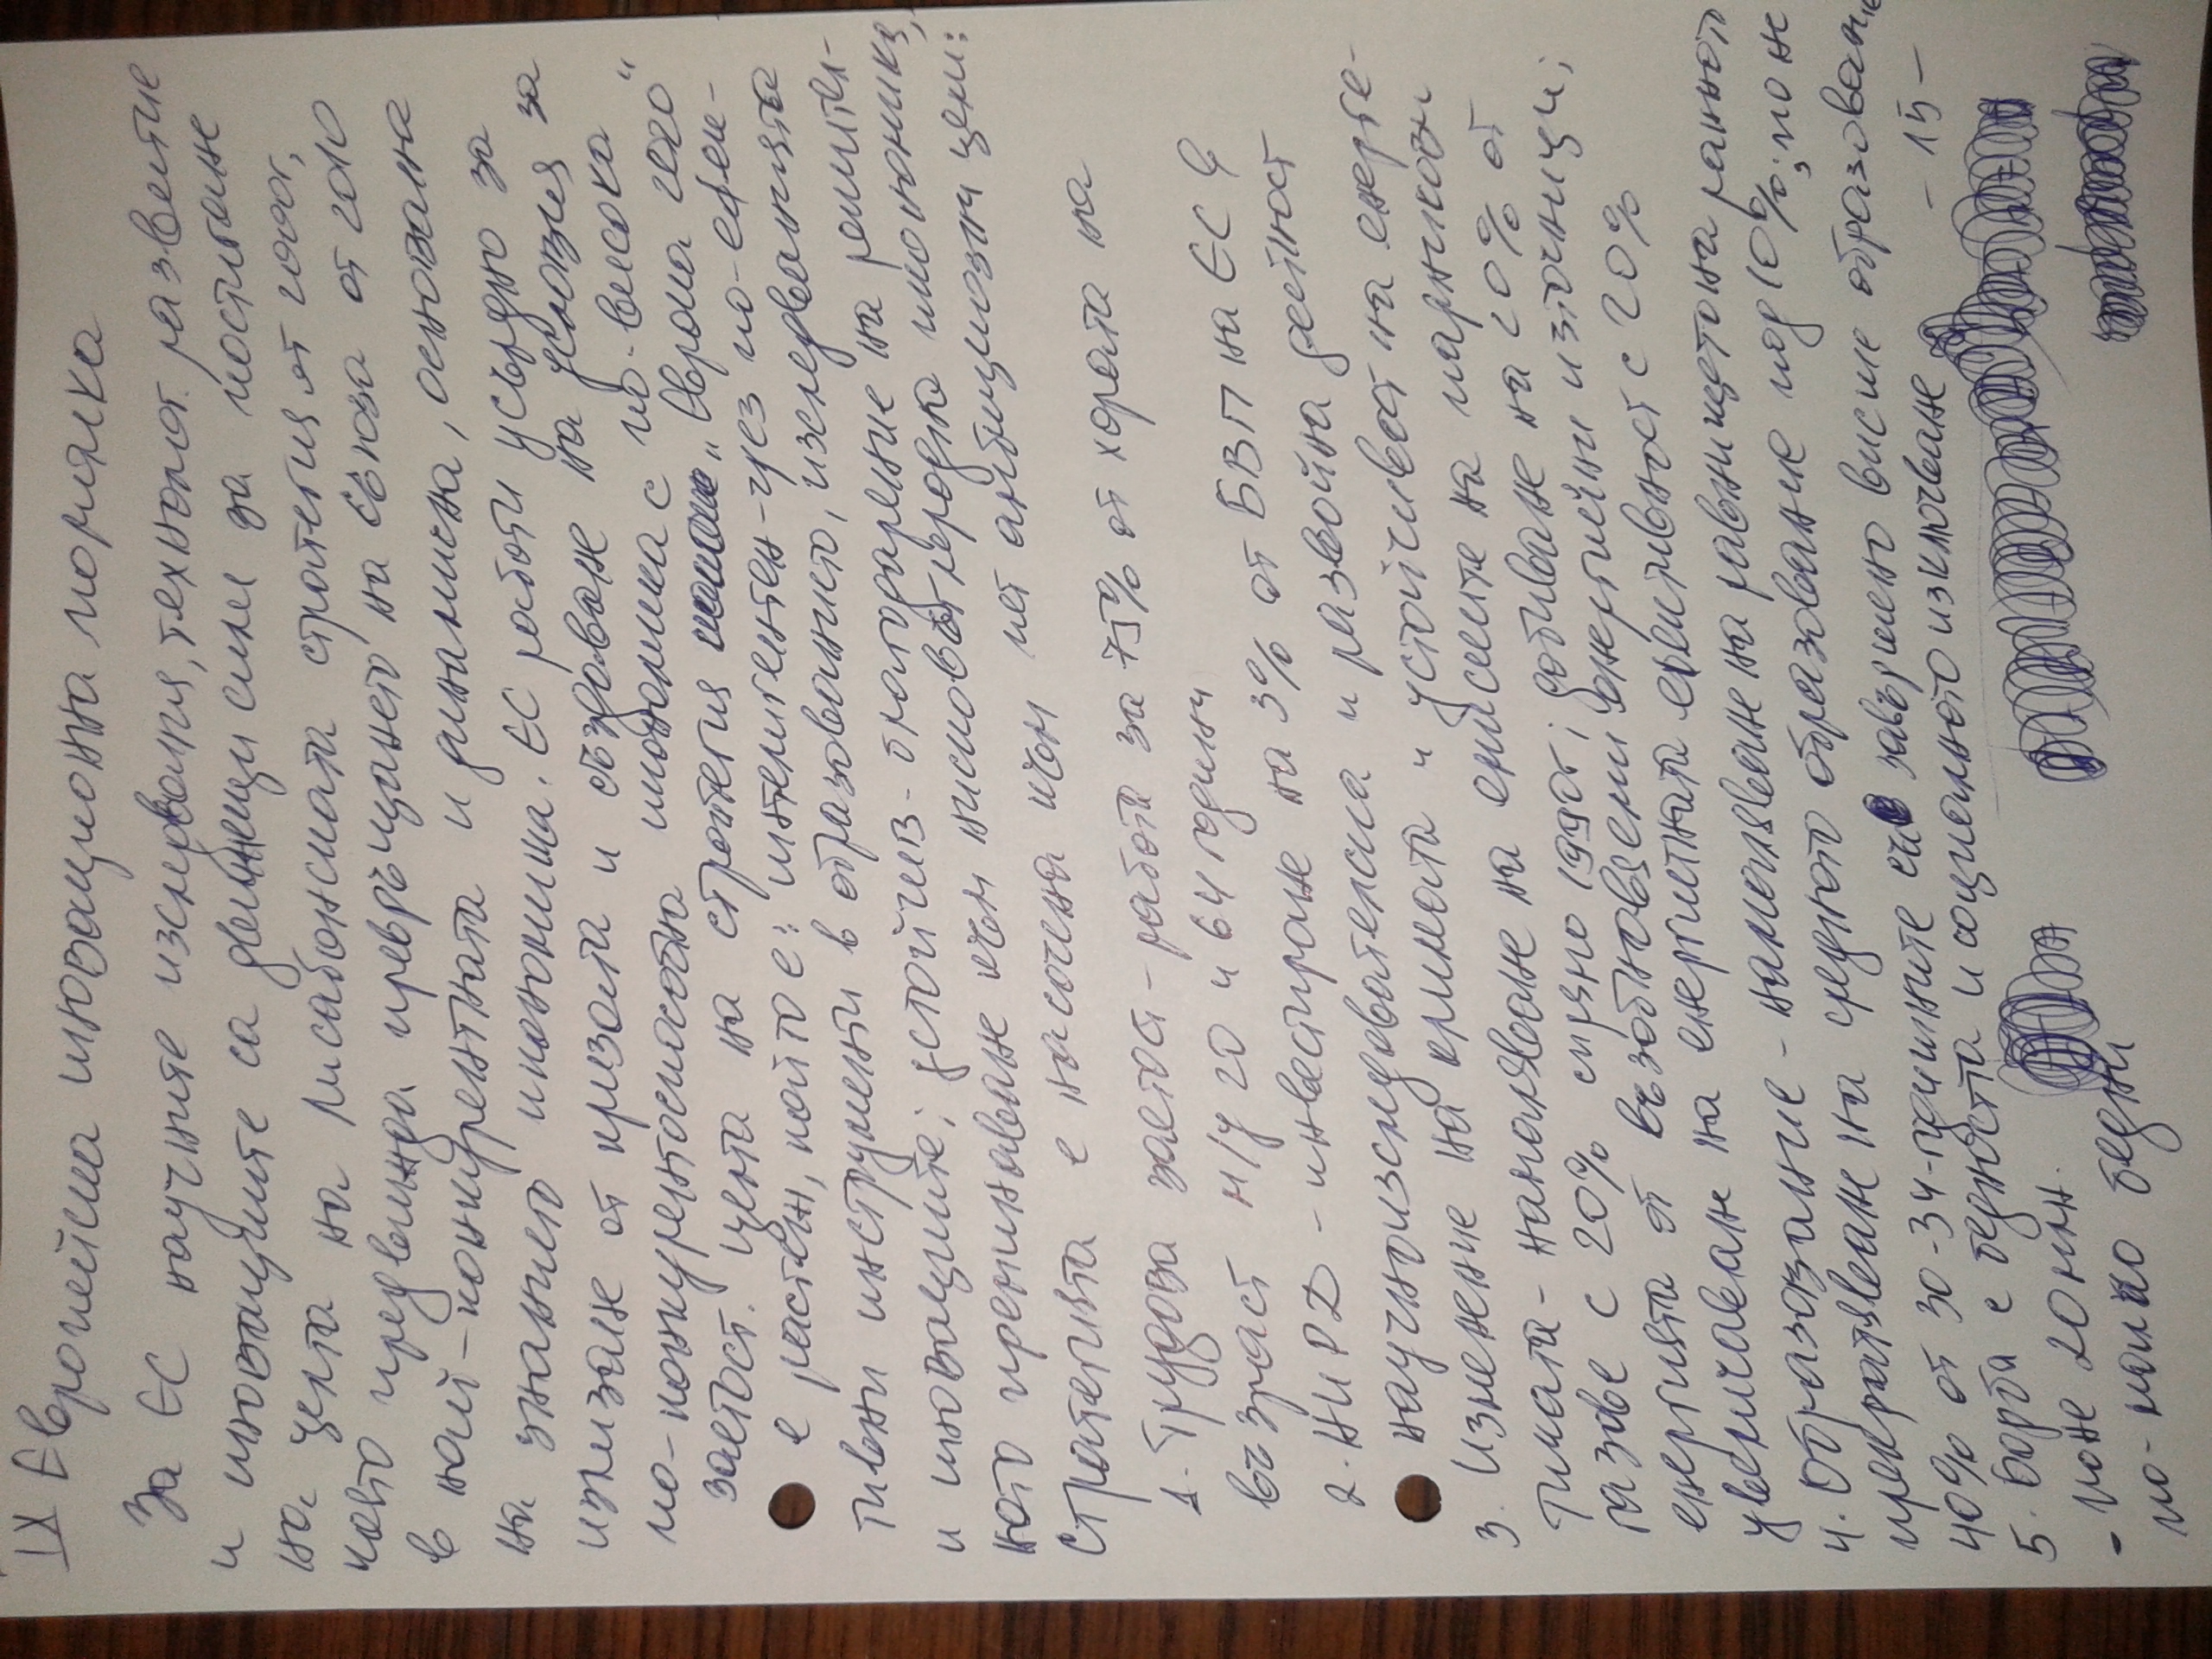 IX Европейска иновационна политика
За ЕС научните изследвания, технолог. развитие
и иновациите са движещи сили за постигане
на целта на Лисабонската стратегия от 2000г,
която предвижда превръщането на съюза от 2010
в най-конкурентната и динамична, основана
на знанието икономика. ЕС работи усърдно за
излизане от кризата и създаване на условия за
по-конкурентоспособна икономика с по-висока
заетост. Целта на стратегия „Европа 2020“
е растеж, който е: интелигентен-чрез по-ефек-
тивни инструменти в образованието, изследванията
и иновациите; устойчив- благодарение на решител-
ното преминаване към нисковъглеродна икономика,
Стратегията е насочена към пет амбициозни цели:
1. Трудова заетост - работа за 75% от хората на
възраст м/у 20 и 64 години
2. НИРД - инвестиране на 3% от БВП на ЕС в
научноизследователска и развойна дейност
3. Изменение на климата и устойчивост на енерге-
тиката - намаляване на емисиите на парникови
газове с 20% спрямо 1990г; добиване на 20% от
енергията от възобновяеми енергийни източници;
увеличаван на енергийната ефективност с 20%
4. Образование - намаляване на равнището на ранното
прекратяване на училищното образование под 10%; поне
40% от 30-34-годишните със завършено висше образование
5. Борба с бедността и социалното изключване - 15 -
- поне 20 млн.
по-малко бедни